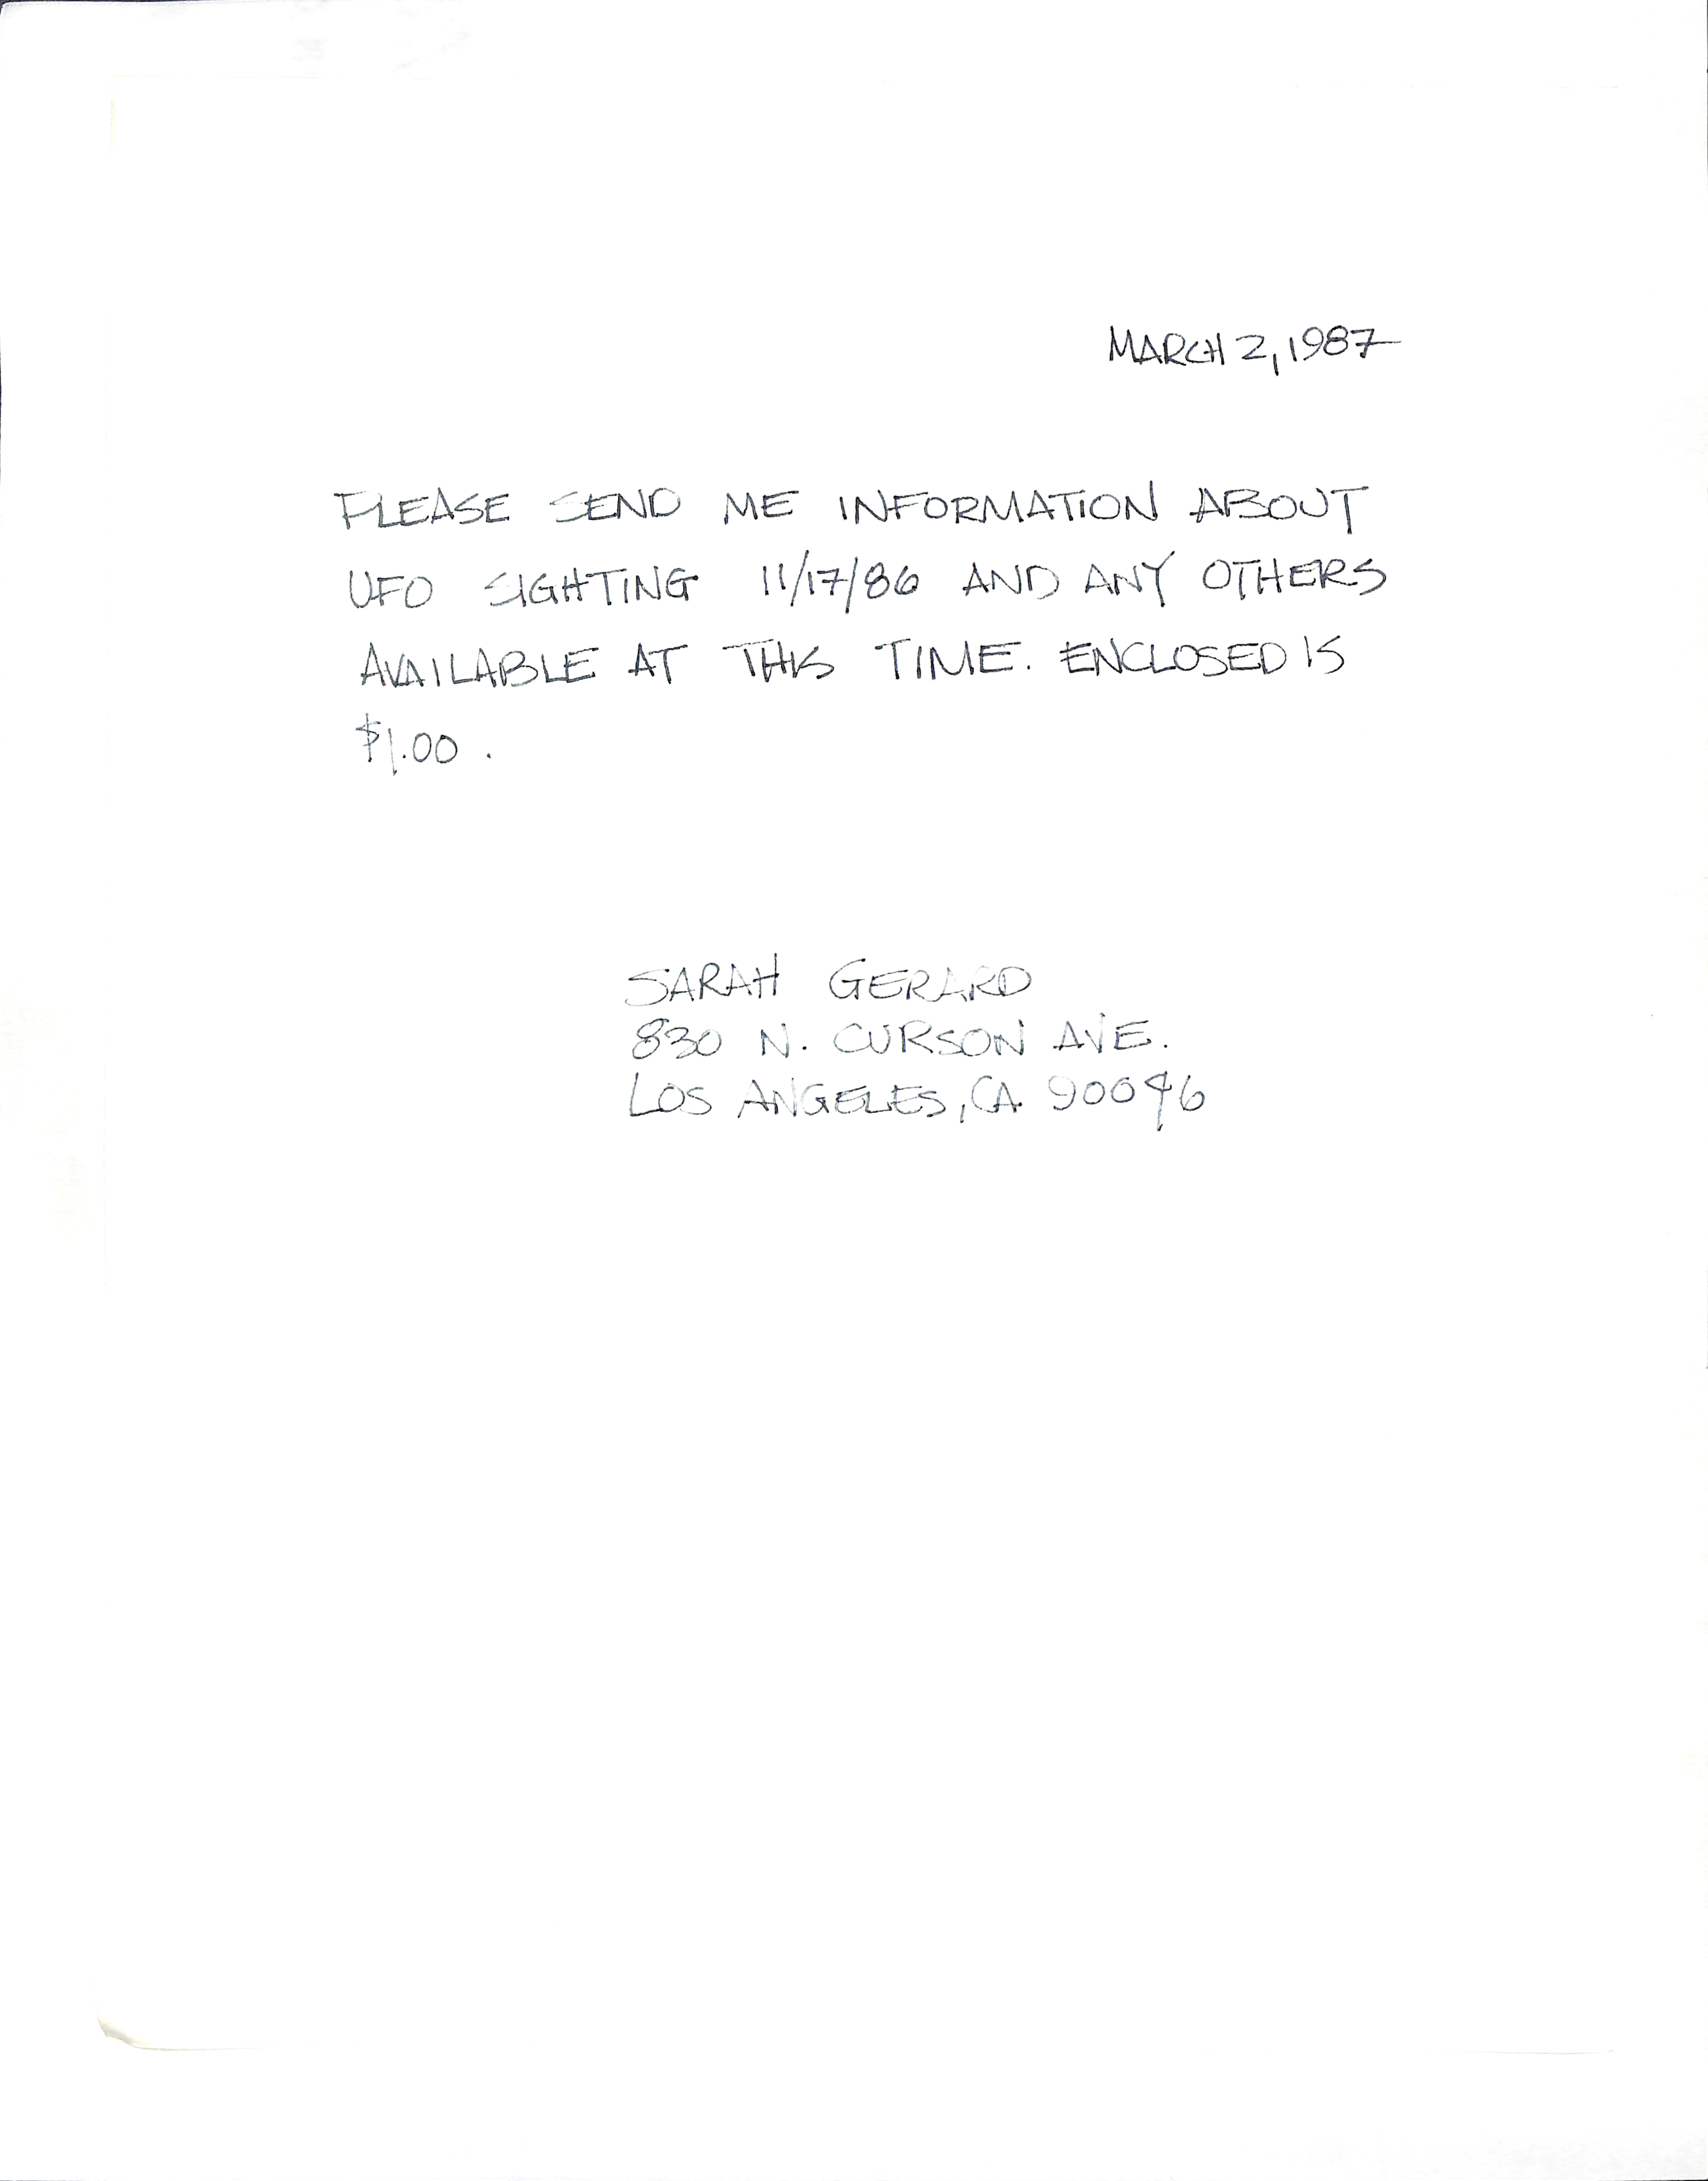 MARCH 2, 1987
PLEASE SEND ME INFORMATION ABOUT
UFO SIGHTING 11/17/86 AND ANY OTHERS
AVAILABLE AT THIS TIME. ENCLOSED IS
$1.00 .
SARAH GERARD
830 N. CURSON AVE.
LOS ANGELES, CA. 90046